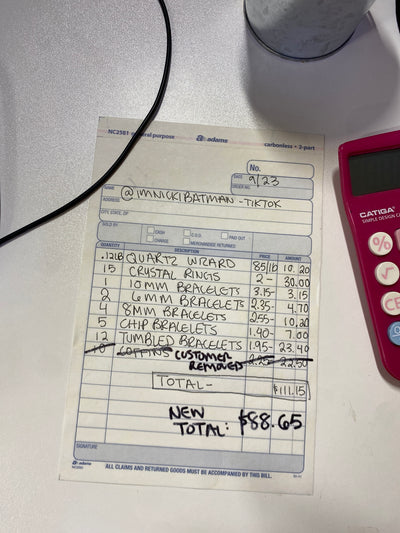 NC2581 general purpose adams carbonless • 2-part
No.
DATE 9/23
ORDER NO.
NAME @IMNICKIBATMAN - TIKTOK
ADDRESS
CITY, STATE, ZIP
SOLD BY CASH C.O.D. PAID OUT
CHARGE MERCHANDISE RETURNED
QUANTITY DESCRIPTION PRICE AMOUNT
.12LB QUARTZ WIZARD 85/lb 10.20
15 CRYSTAL RINGS 2- 30.00
1 10MM BRACELETS 3.15- 3.15
2 6MM BRACELETS 2.35- 4.70
4 8MM BRACELETS 255- 10.20
5 CHIP BRACELETS 1.40- 7.00
12 TUMBLED BRACELETS 1.95- 23.40
10 COFFINS CUSTOMER REMOVED 2.25- 22.50
TOTAL- $111.15
NEW
TOTAL: $88.65
SIGNATURE
adams
ALL CLAIMS AND RETURNED GOODS MUST BE ACCOMPANIED BY THIS BILL.
CATIGA
SIMPLE DESIGN
%
√
CE